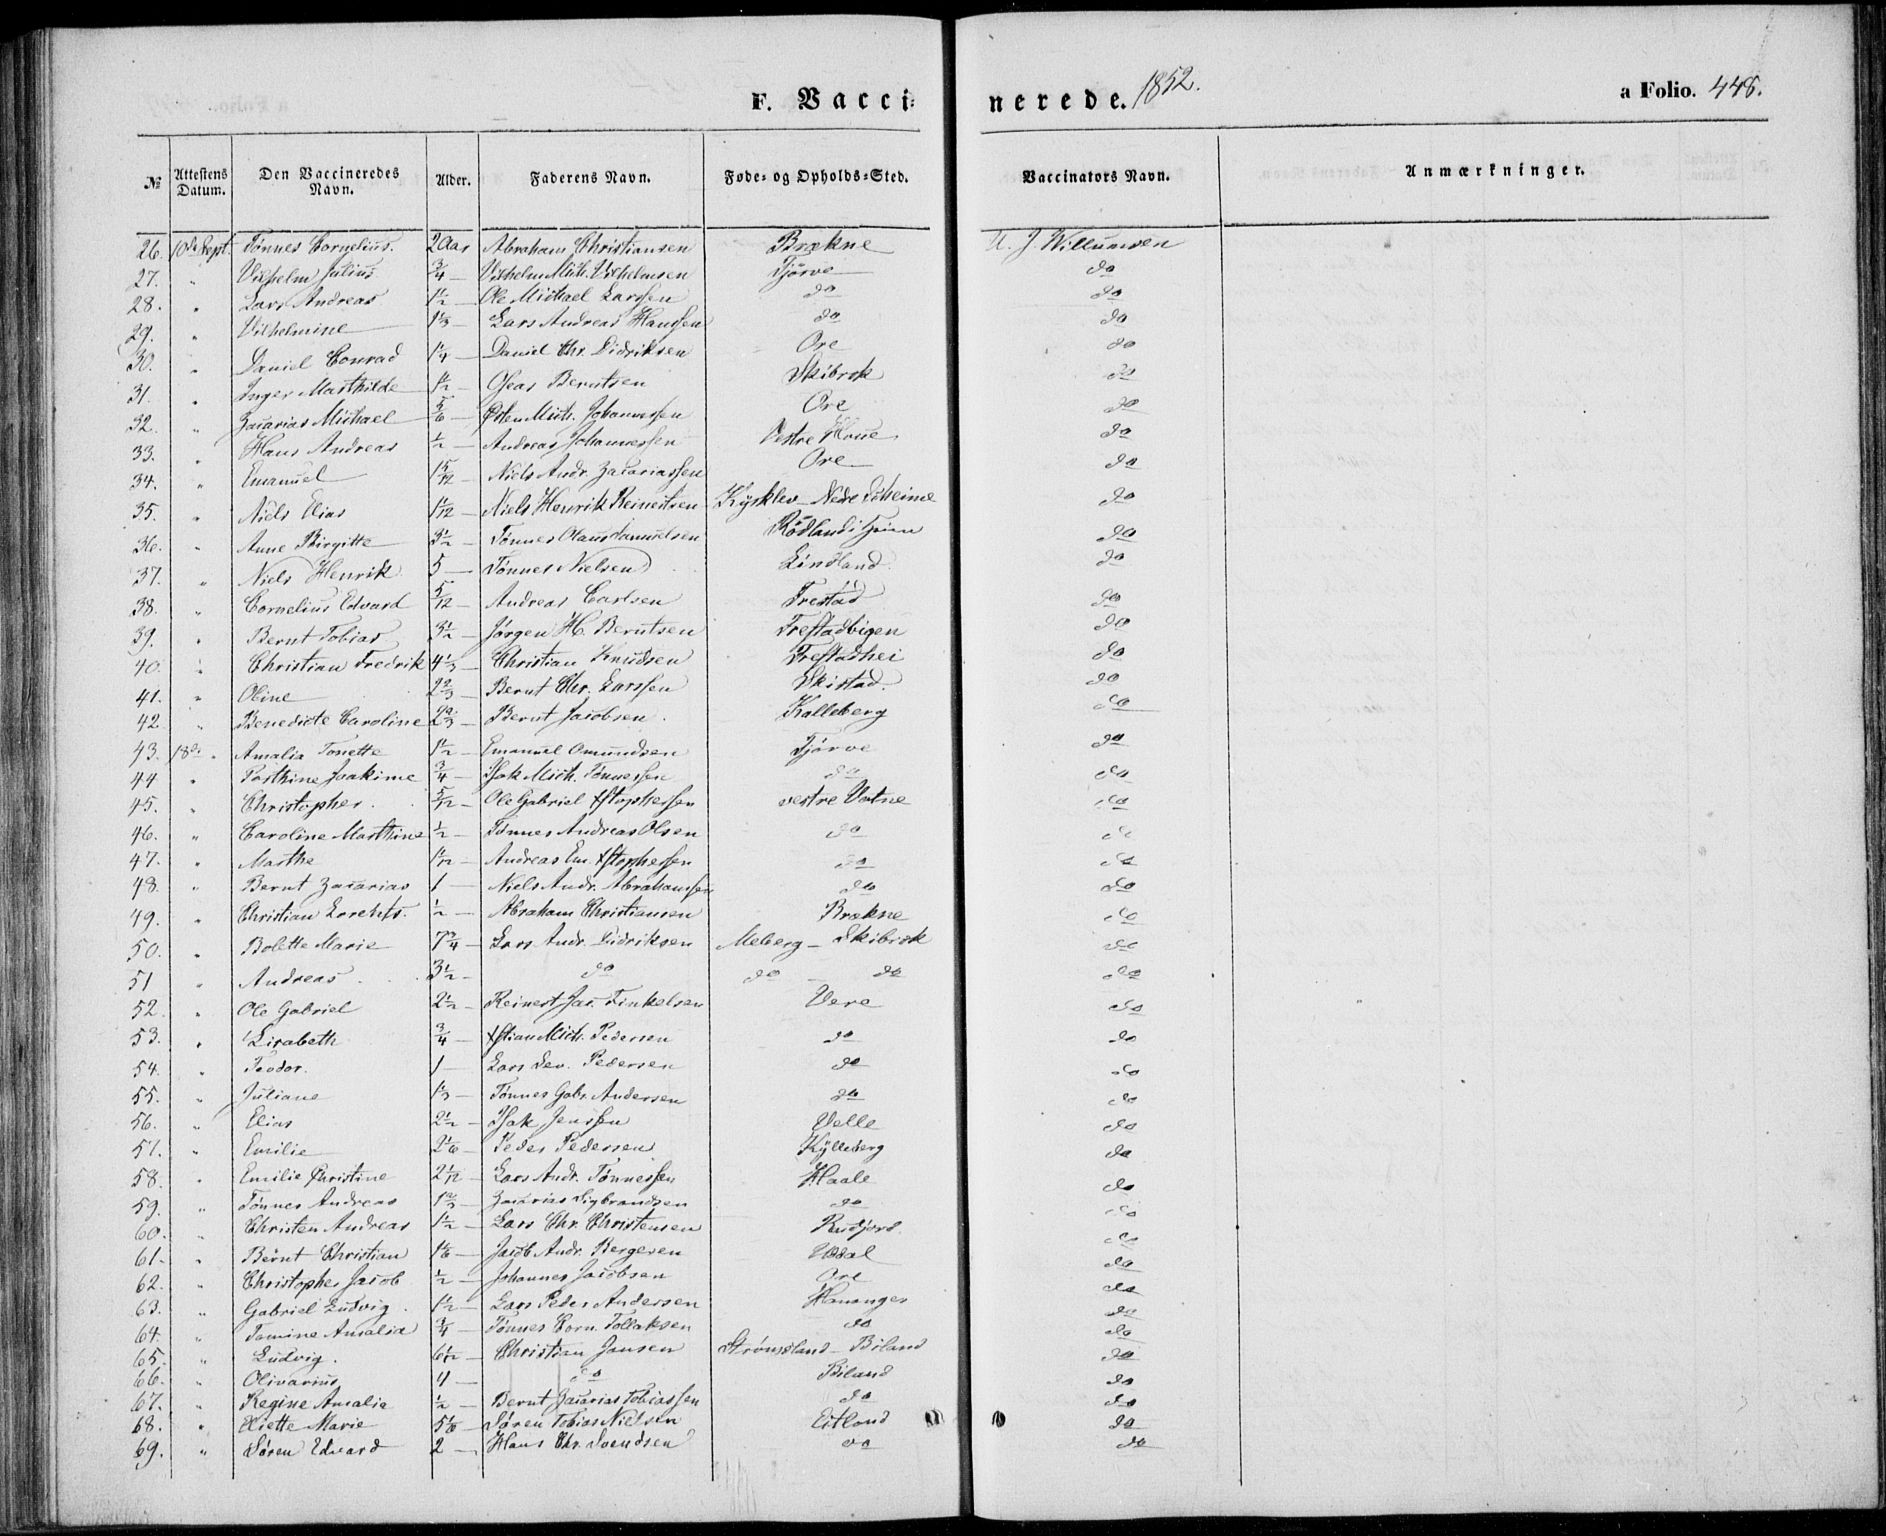 F. Vaccinerede. 1852. a Folio. 448.
№ | Attestens Datum. | Den Vaccineredes Navn. | Alder. | Faderens Navn. | Føde- og Opholds-Sted. | Vaccinators Navn. | Anmærkninger.
26. 10de Sept. Tønnes Cornelius. 2 Aar Abraham Christiansen Brækne J. Willumsen
27. " Vilhelm Julius 3/4 — Vilhelm Mich. Vilhelmsen Tjørve do
28. " Lars Andreas 1 1/2 — Ole Michael Larssen do do
29. " Vilhelmine 1 1/3 — Lars Andreas Hanssen do do
30. " Daniel Conrad 1 1/4 — Daniel Chr. Didriksen Ore do
31. " Inger Marthilde 1 1/2 — Oseas Berntsen Skibrok do
32. " Zacarias Michael 5/6 — Østen Mich. Johannessen Ore do
33. " Hans Andreas 1/2 — Andreas Johannessen Vestre Houe do
34. " Emanuel 1 5/12 — Niels Andr. Zacariassen Ore do
35. " Niels Elias 1 1/12 — Niels Henrik Reinertsen Kysklev — Nedre do
36. " Anne Birgitte 3 1/2 — Tønnes Olaus Samuelsen Rødlands do
37. " Niels Henrik 5 — Tønnes Nielsen Lindland do
38. " Cornelius Edvard 5/12 — Andreas Carlsen Trestad do
39. " Bernt Tobias 3 1/2 — Jørgen H. Berntsen Trestadbigen do
40. " Christian Fredrik 4 1/3 — Christian Knudsen Trestadhei do
41. " Oline 2 2/3 — Bernt Chr. Larssen Skistad. do
42. " Benedicte Caroline 2 2/3 — Bernt Jacobsen. Kalleberg do
43. 18de " Amalia Tonette 1 1/2 — Emanuel Omundsen Tjørve do
44 " Joakime 3/4 — Isak Mich. Tønnessen do do
45. " Christopher. 5/12 — Ole Gabriel Xstophersen vestre Vatne do
46. " Caroline Marthine 1/2 — Tønnes Andreas Olsen do do
47. " Marthe 1 1/2 — Andreas Em. Xstophersen do do
48. " Bernt Zacarias 1 — Niels Andr. Abrahamsen do do
49. " Christian Lorents. 1/2 — Abraham Christiansen Brækne do
50. " Bolette Marie 7 3/4 — Lars Andr. Didriksen Meberg — Skibrok do
51 " Andreas 3 1/2 — do do — do do
52. " Ole Gabriel 2 1/2 — Reinert Jac. Finkelsen Vere do
53. " Lisabeth 3/4 — Xstian Mich. Pedersen do do
54. " Teodor. 1 — Lars Lev. Pedersen do do
55. " Juliane 1 1/3 — Tønnes Gabr. Andersen do do
56. " Elias 2 1/2 — Isak Jenssen Velle do
57. " Emilie 2 1/6 — Peder Pedersen Kylleberg do
58. " Emilie Christine 2 1/12 — Lars Andr. Tønnessen Haale do
59. " Tønnes Andreas 1 2/3 — Zacarias Sigbrandsen do do
60. " Christen Andreas 1 1/2 — Lars Chr. Christensen Rudjord. do
61. " Bernt Christian 1 1/6 — Jacob Andr. Bergesen Udal do
62. " Christopher Jacob 1/2 — Johannes Jacobsen Ore do
63. " Gabriel Ludvig. 1 1/2 — Lars Peder Andersen Hananger do
64. " Tomine Amalia 3/4 — Tønnes Corn. Tollaksen do do
65. " Ludvig. 6 1/2 — Christian Jansen Strømsland — Biland do
66. " Olivarius 4 — do Biland do
67. " Regine Amalia 1/2 — Bernt Zacarias Tobiassen do do
68. " Marie 5 1/6 — Søren Tobias Nielsen Eitland do
69. " Søren Edvard 2 — Hans Chr. Svendsen do do